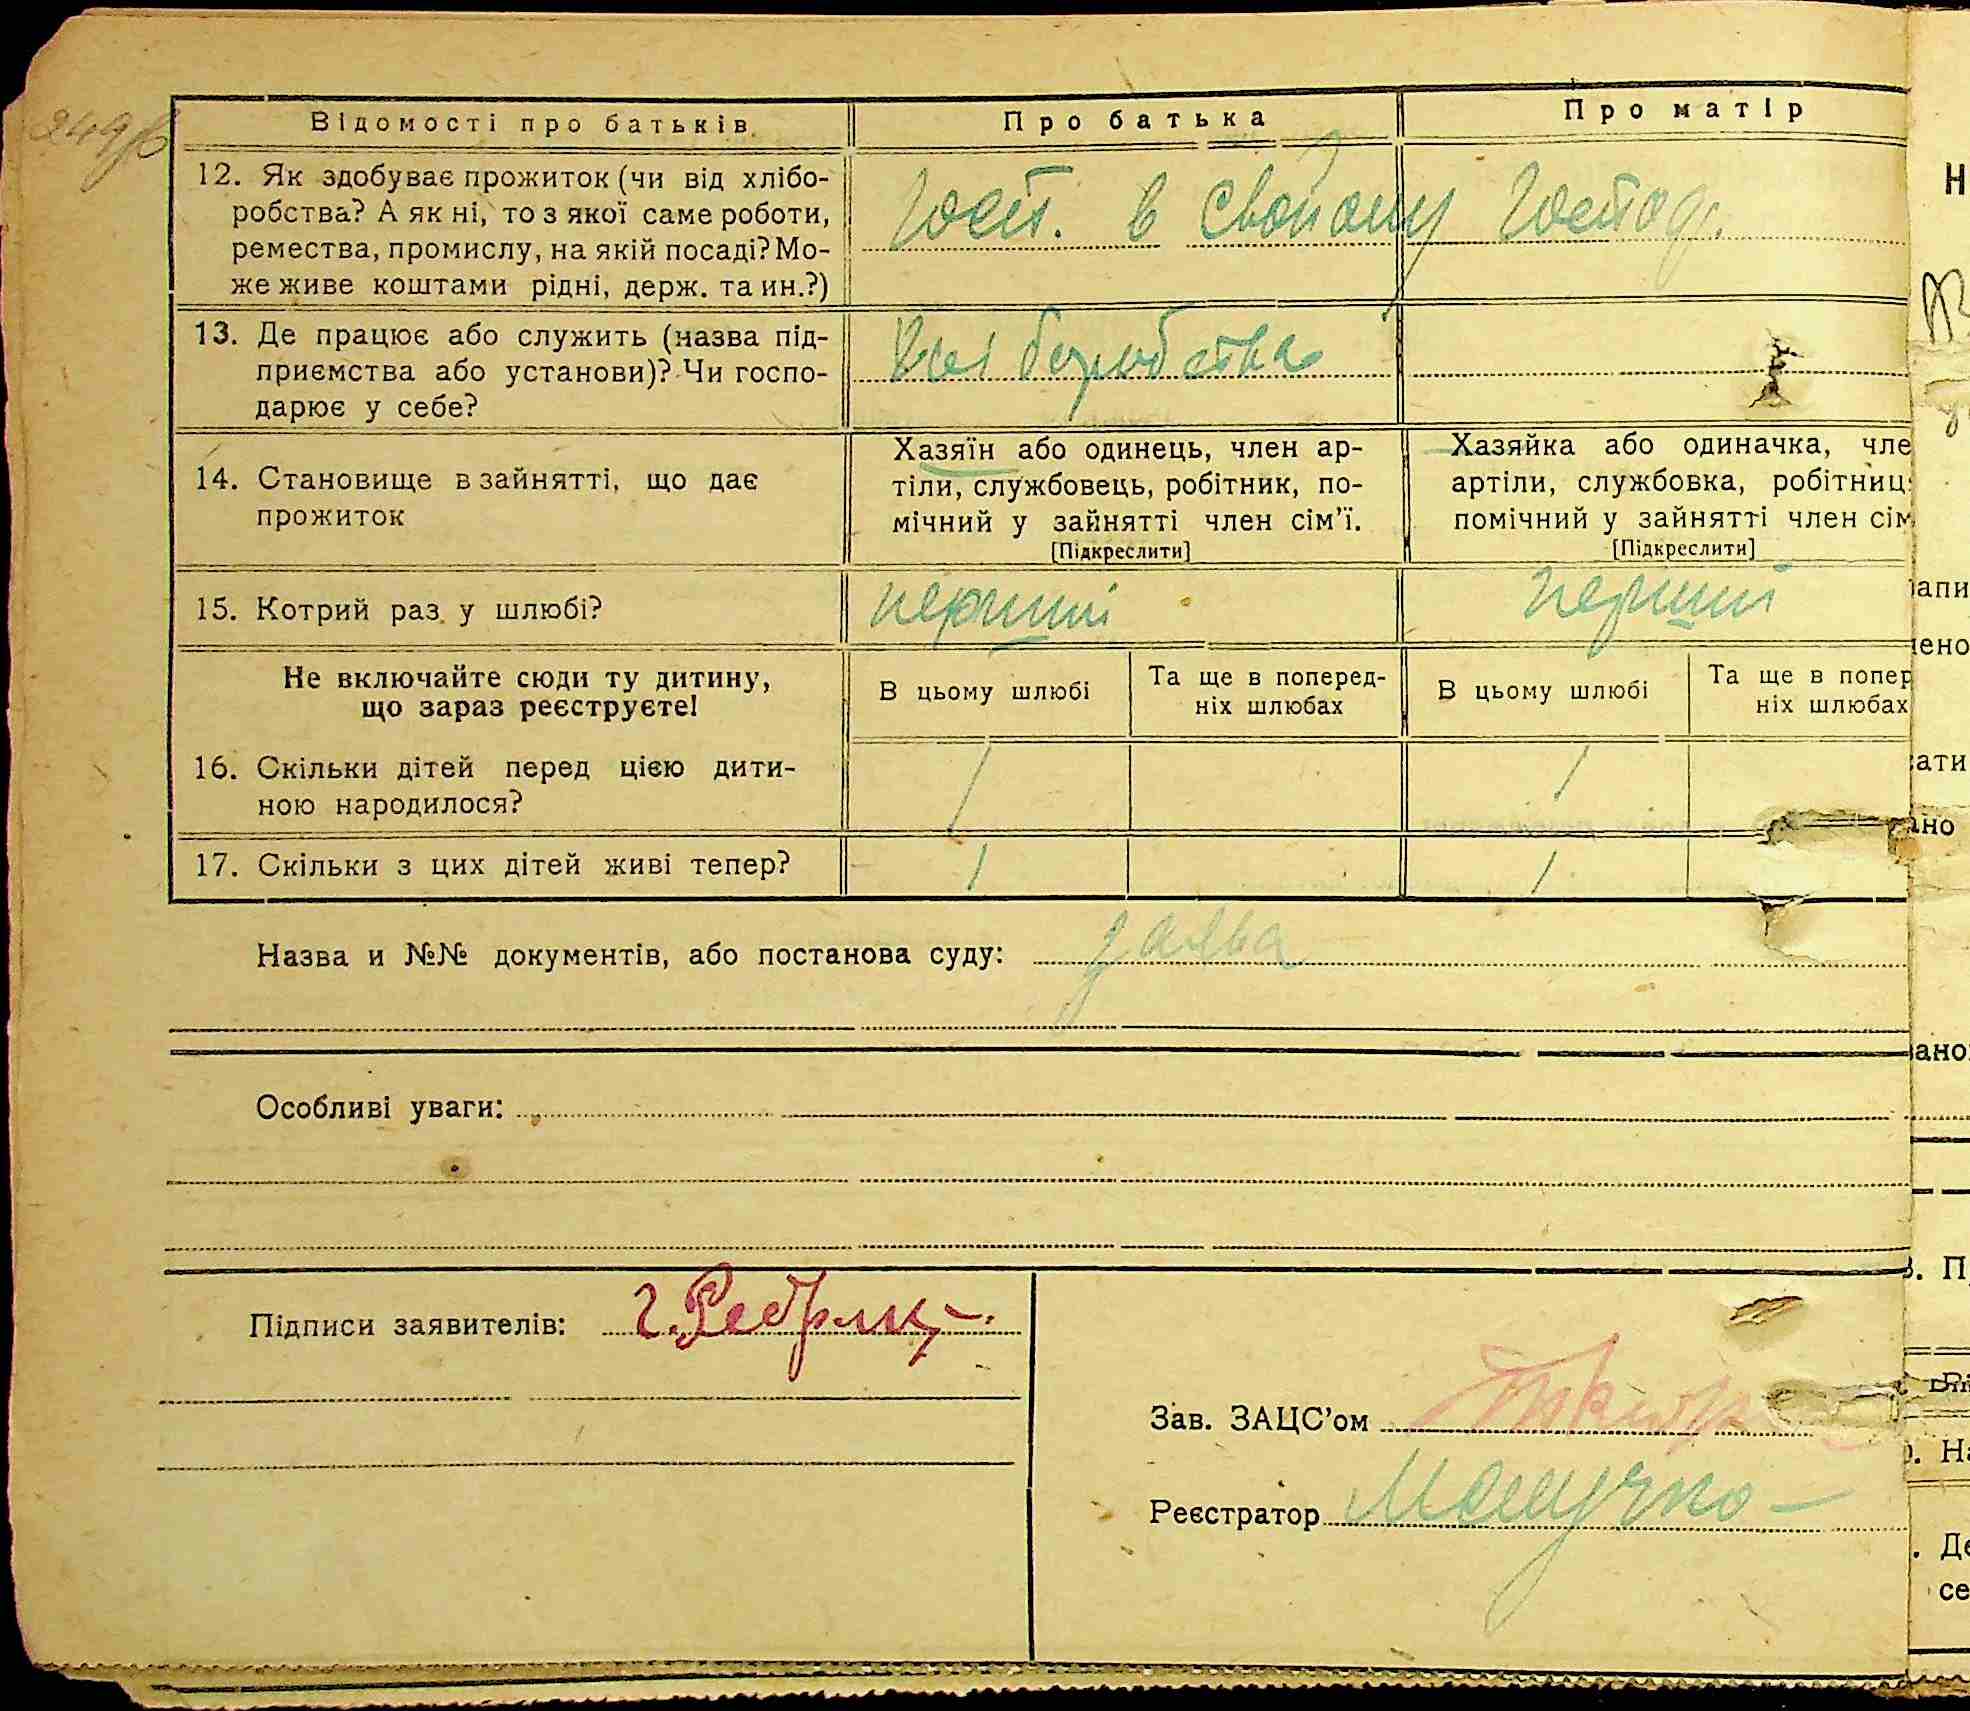 249б
Відомості про батьків
Про батька
Про матір
12. Як здобуває прожиток (чи від хлібо-
робства? А як ні, то з якої саме роботи,
ремества, промислу, на якій посаді? Мо-
же живе коштами рідні, держ. та ин.?)
Госп. в свойому господ.
13. Де працює або служить (назва під-
приємства або установи)? Чи госпо-
дарює у себе?
14. Становище в зайнятті, що дає
прожиток
Хазяїн або одинець, член ар-
тіли, службовець, робітник, по-
мічний у зайнятті член сім'ї.
[Підкреслити]
Хазяйка або одиначка, чле
артіли, службовка, робітниц
помічний у зайнятті член сім
[Підкреслити]
15. Котрий раз у шлюбі?
перший
перший
Не включайте сюди ту дитину,
що зараз реєструєте!
В цьому шлюбі
Та ще в поперед-
ніх шлюбах
В цьому шлюбі
Та ще в попер
ніх шлюбах
16. Скільки дітей перед цією дити-
ною народилося?
1
1
17. Скільки з цих дітей живі тепер?
1
1
Назва и №№ документів, або постанова суду: заява
Особливі уваги:
Підписи заявителів:
Зав. ЗАЦС'ом
Реєстратор